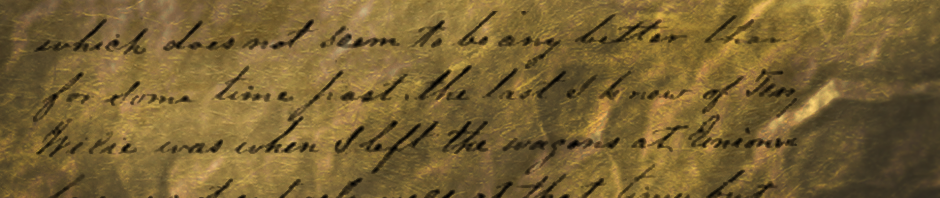 which does not seem to be any better than
for some time past. the last I know of
Willie was when I left the wagons at
at that time but